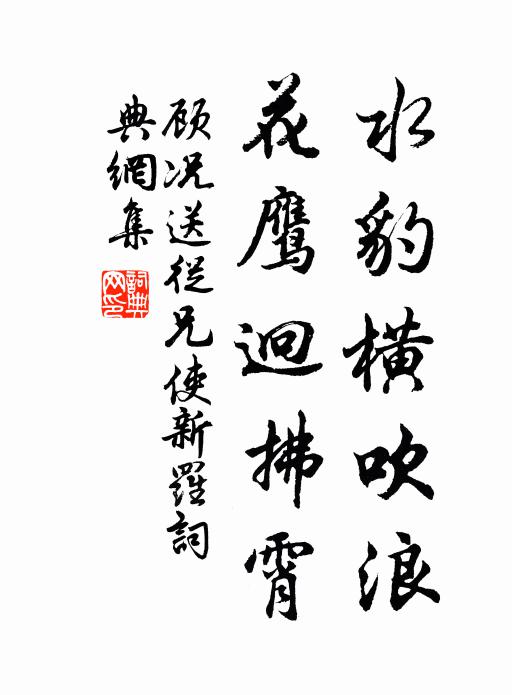 水豹橫吹浪
花鷹迴拂霄
顾况送從兄使新羅詞
典網集
詞典网印